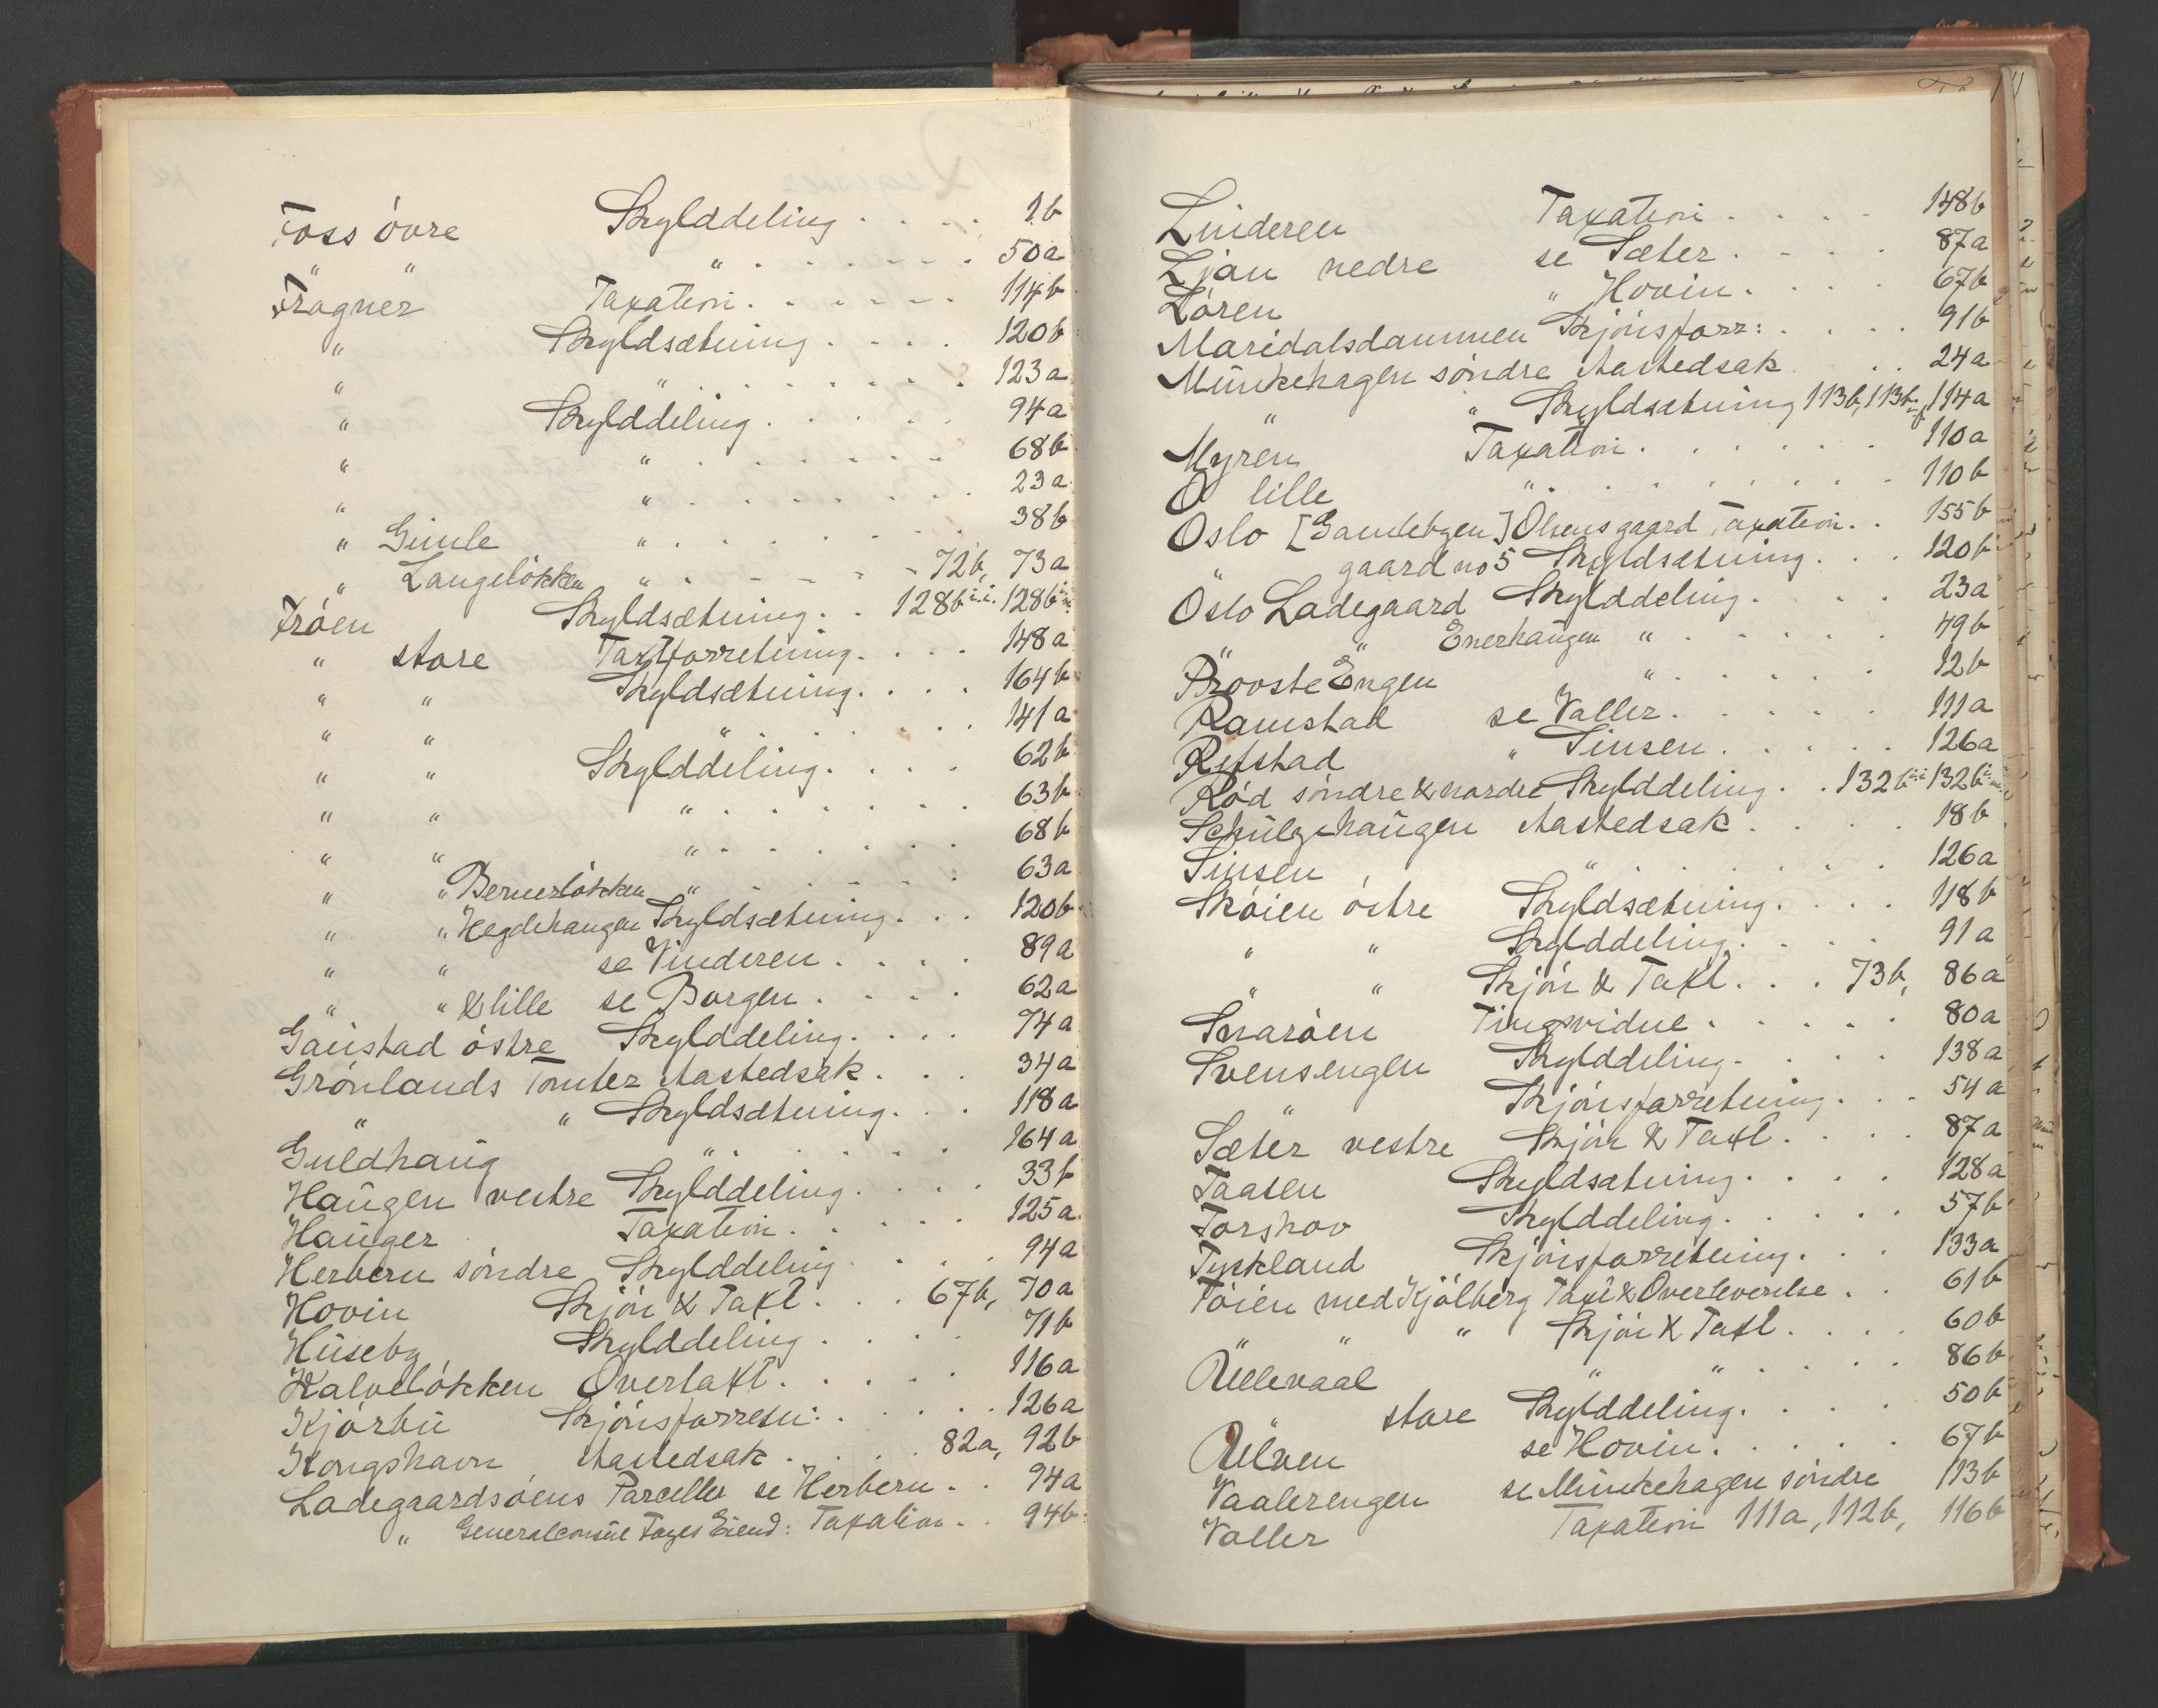 Foss övre Skylddeling . . . . 1b
" " " . . . . . . 50a
Frogner Taxation . . . . . 114b
" Skyldsætning . . . . 120b
" " . . . . . . . 123a
" Skylddeling . . . . . 94a
" " . . . . . . . 68b
" " . . . . . . . 23a
" Gimle " . . . . . . . 38b
" Langelökken " . . . . . 72b, 73a
Fröen Skyldsætning . . 128b 128b
" store Taxtforretning . . . . 148a
" " Skyldsætning . . . . 164b
" " " . . . . . . 141a
" " Skylddeling . . . . 62b
" " " . . . . . . . 63b
" " " . . . . . . . 68b
" " Bernerlökken " . . . . . . 63a
" " Hegdehaugen Skyldsætning . . . 120b
" " se Vinderen . . . . 89a
" " & lille se Borgen . . . . 62a
Gaustad östre Skylddeling . . . . 74a
Grönlands Tomter Aastedsak . . . 34a
" " Skyldsætning . . . 118a
Guldhaug " . . . . . . 164a
Haugen vestre Skylddeling . . . . 33b
Hauger Taxation . . . . . 125a
Herbern söndre Skylddeling . . . . 94a
Hovin Skjön & Taxt . . . 67b, 70a
Huseby Skylddeling . . . . 71b
Kalvelökken Overtaxt . . . . . 116a
Kjörbu Skjönsforretn: . . . . . 126a
Kongshavn Aastedsak . . . . 82a, 92b
Ladegaardsöens Parceller se Herbern . . 94a
" Generalconsul Fayes Eiend: Taxation . . 94b
Linderen Taxation . . . . 148b
Ljan nedre se Sæter . . . . 87a
Lören " Hovin . . . . 67b
Maridalsdammen Skjönsforr: . . . . . 91b
Munkehagen söndre Aastedsak . . 24a
" " Skyldsætning 113b, 113b, 114a
Myren Taxation . . . . . . 110a
Ö lille " . . . . . . . . 110b
Oslo [Gamlebyen] Olsensgaard Taxation . . 155b
" gaard no 5 Skyldsætning . . . 120b
Oslo Ladegaard Skylddeling . . . . 23a
" " Enerhaugen " . . . . . 49b
Provste Engen " . . . . . . 12b
Ramstad se Valler . . . . . 111a
Refstad " Sinsen . . . . . 126a
Röd söndre & nordre Skylddeling . . 132b 132b
Schulzehaugen Aastedsak . . . . 18b
Sinsen " . . . . . . . 126a
Sköien östre Skyldsætning . . . . 118b
" " Skylddeling . . . . 91a
" " Skjön & Taxt . . . 73b, 86a
Snaröen Tingsvidne . . . . . 80a
Svensengen Skylddeling . . . . 138a
" Skjönsforretning . . . 54a
Sæter vestre Skjön & Taxt . . . . 87a
Taasen Skyldsætning . . . . 128a
Torshov Skylddeling . . . . . 57b
Tyskland Skjönsforretning . . . 133a
Töien med Kjölberg Taxt & Overleverelse . . 61b
" " " Skjön & Taxt . . . . 60b
Ullevaal " " . . . . . 86b
store Skylddeling . . . . 50b
Ulven se Hovin . . . . . 67b
Vaalerengen se Munkehagen söndre 113b
Valler Taxation 111a, 112b, 116b